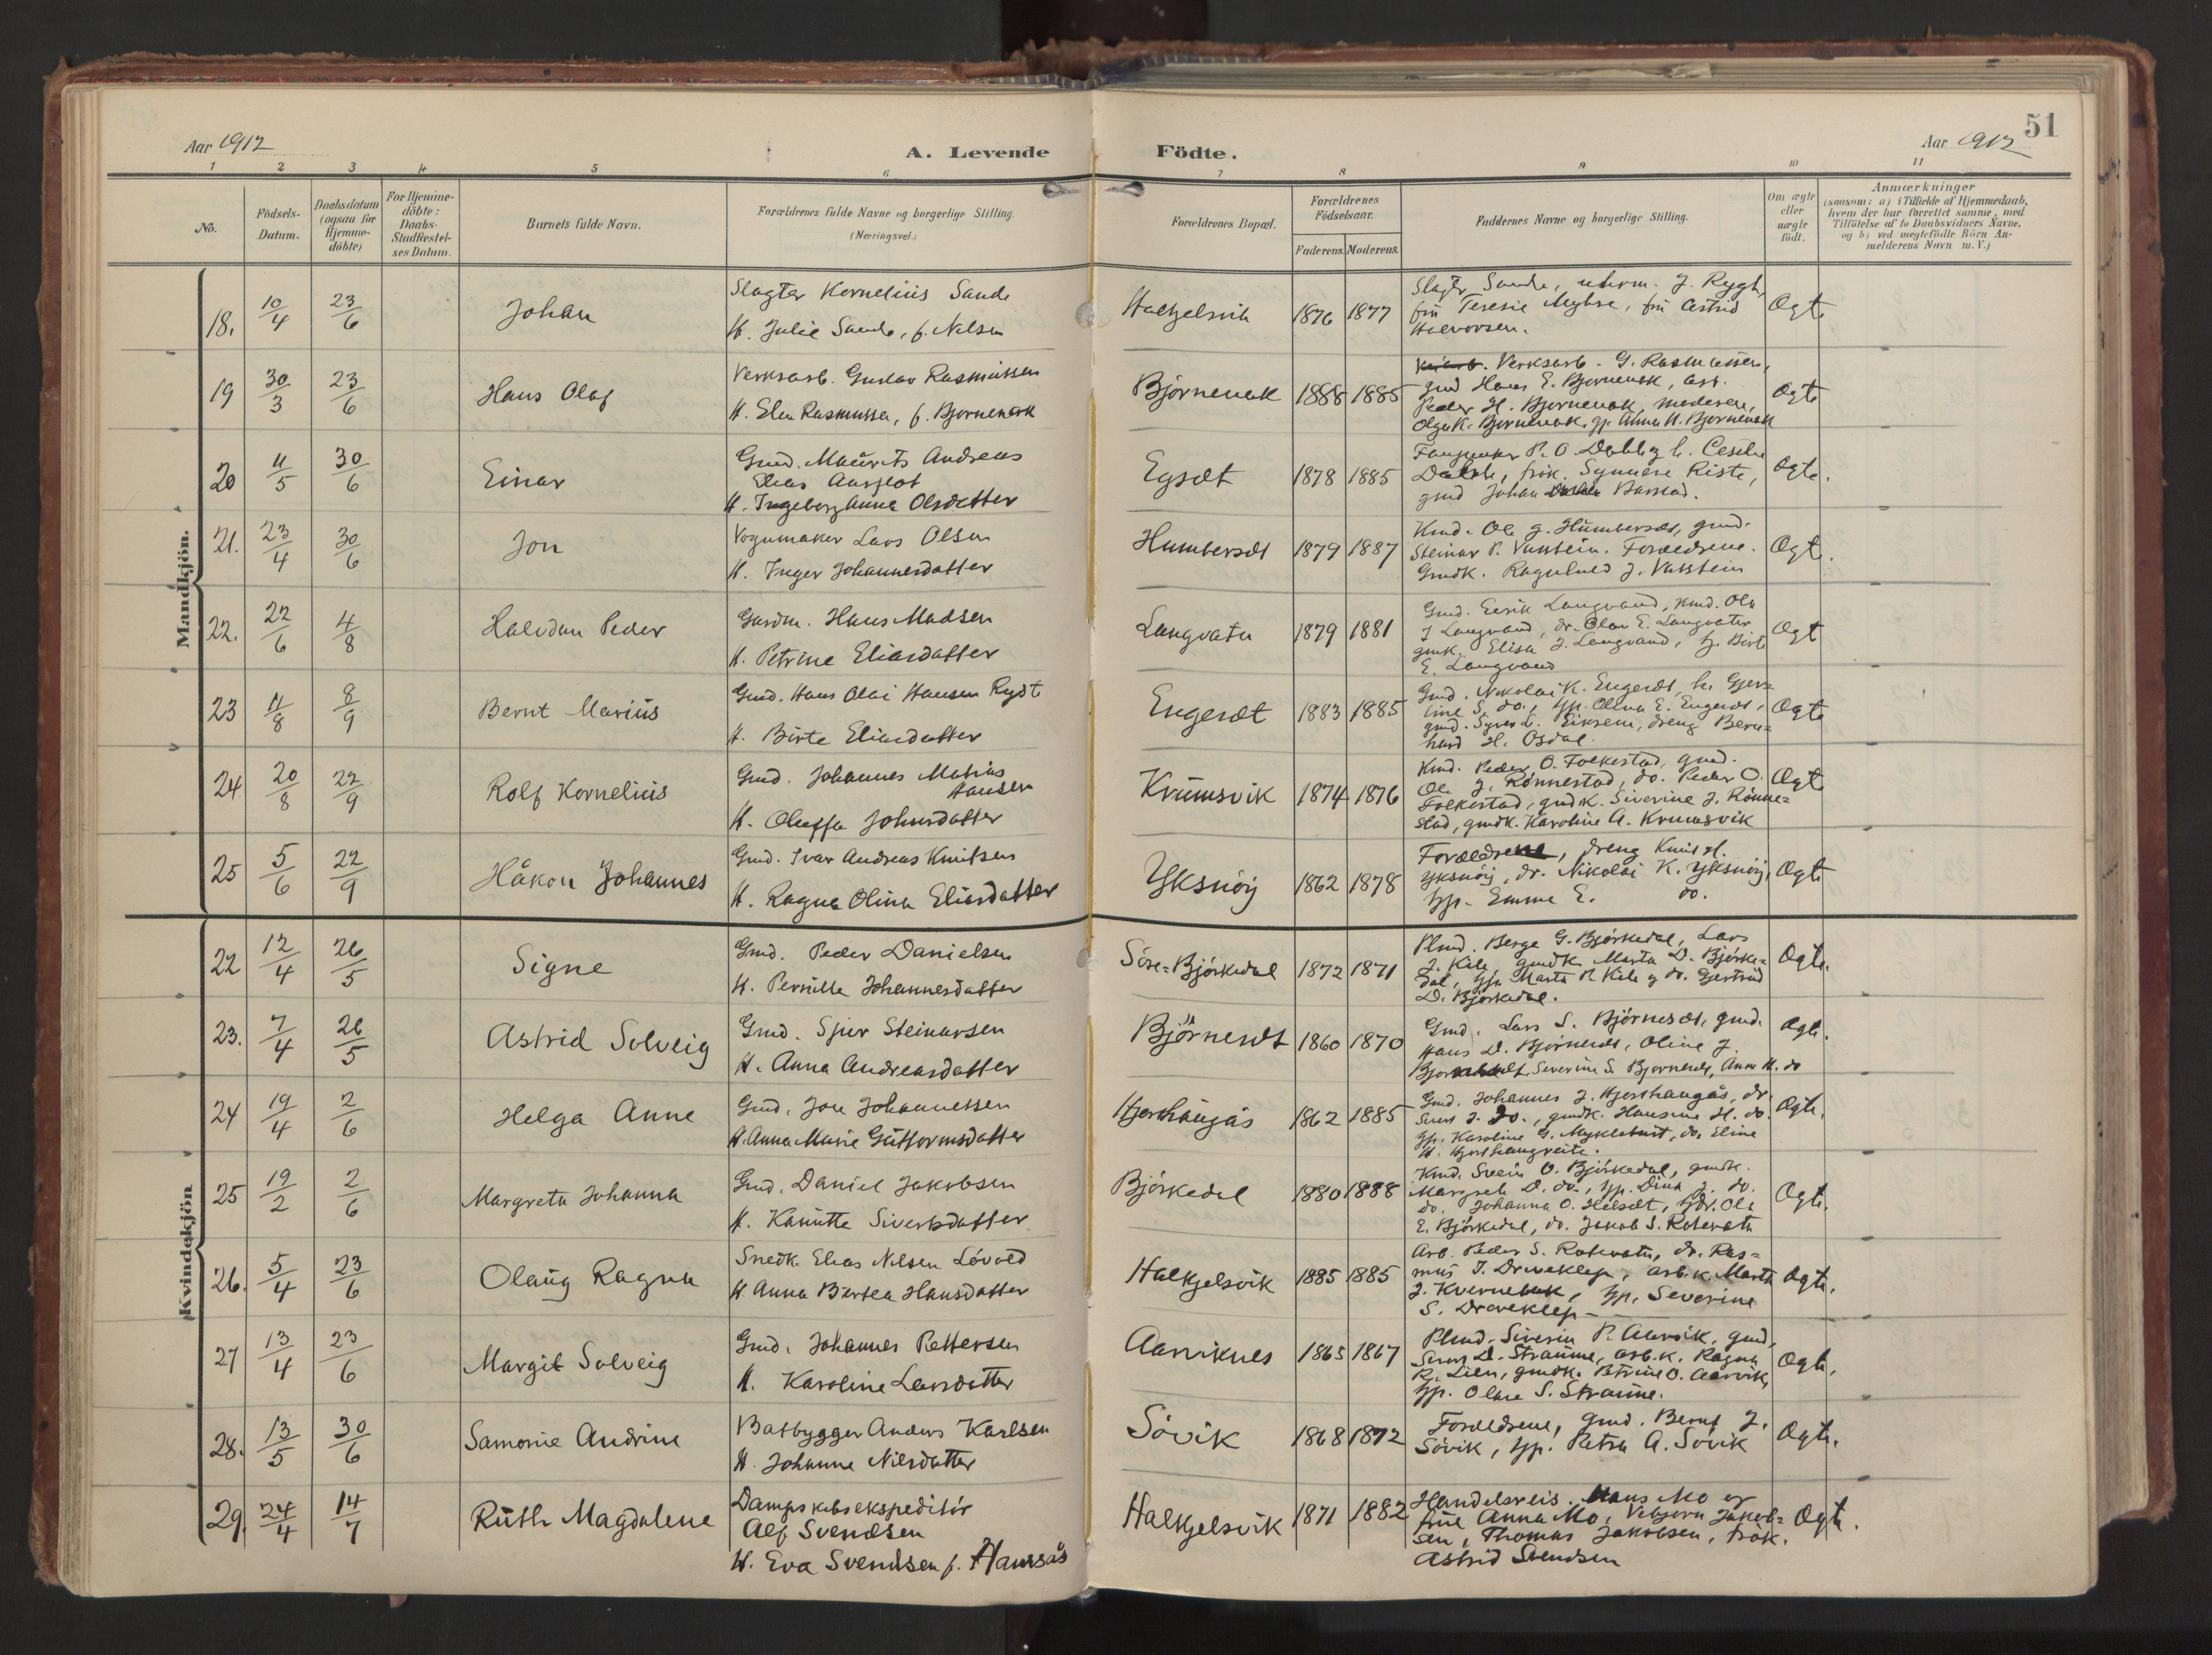 51
Aar 1912
A. Levende Födte.
Aar 1912
1 2 3 4 5 6 7 8 9 10 11
No.
Födsels-Datum.
Daabsdatum (ogsaa for Hjemme-döbte)
For Hjemme-döbte: Daabs-Stadfæstel-ses Datum.
Barnets fulde Navn.
Forældrenes fulde Navne og borgerlige Stilling.
(Næringsvei.)
Forældrenes Bopæl.
Forældrenes Födselsaar.
Faderens. Moderens.
Faddernes Navne og borgerlige Stilling.
Om ægte eller uægte födt.
Anmærkninger
(saasom: a) i Tilfælde af Hjemmedaab, hvem der har forrettet samme, med Tilföielse af to Daabsvidners Navne, og b) ved uægtefödte Börn An-melderens Navn m. V.)
Mandkjön.
18. 10/4 23/6 Johan
Slagter Kornelius Sande
H. Julie Sande, f. Nilsen
1876 1877
Slagter Sande, J. Rygh,
fru Teresie Myhre, fru Astrid
Halvorsen.
Ogte
19 30/3 23/6 Hans Olaf
Verksarb. Gustav Rasmussen
H. Elen Rasmussen, f. Bjornenak
Björnenak 1888 1885
Verksarb. G. Rasmussen,
gmd Hans E. Bjornenak, arb.
Peder H. Bjornenak, moderen,
Olga K. Bjornenak, gp. Anna H. Bjornenak
Ogte
20 11/5 30/6 Einar
Gmd. Maurits Andreas
Elias Aarflot
H. Ingeborg Anna Olsdatter
Egsæt 1878 1885
P. O. Dahl og h.
Dahl, frök. Synnøve Riste,
gmd Johan Barstad.
Ogte.
21. 23/4 30/6 Jon
Vognmaker Lars Olsen
H. Inger Johannesdatter
Humberset 1879 1887
Kmd. Ole J. Humberset, gmd.
Steinar P. Vatstein. Foreldrene.
Gmdk. Ragnhild J. Vasstein
Ogte.
22. 22/6 4/8 Halvdan Peder
Gardm. Hans Madsen
H. Petrine Eliasdatter
Langvatn 1879 1881
Gmd. Eerik Langvand, kmd. Ole
J Langvand, dr. Olav E. Langvatn
gmk. Elisa J. Langvand, gp. Birte
E. Langvand
Ogt
23 11/8 8/9 Bernt Marius
Gmd. Hans Olai Hansen Ryst
H. Birte Eliasdatter
Engeset 1883 1885
Gmd. Nikolai K. Engeset, h. Gjer=
tine S. do., gp. Olina E. Engeset,
gmd. Syver L. Eiksem, dreng Bern=
hard H. Osdal.
Ogte
24 20/8 22/9 Rolf Kornelius
Gmd. Johannes Matias
Hansen
H. Oluffa Johnsdatter
Krumsvik 1874 1876
Kmd. Peder O. Folkestad, gmd.
Ole J. Rönnestad, do. Peder O.
Folkestad, gmdk. Siverine J. Rönne=
stad, gmdk. Karoline A. Krumsvik
Ogte
25 5/6 22/9 Håkon Johannes
Gmd. Ivar Andreas Knutsen
H. Ragna Olina Eliasdatter
Yksnöy 1862 1878
Foreldrene, dreng Knut H.
Yksnöy, dr. Nikolai K. Yksnöy,
gp. Emma E. do.
Ogte
Kvindekjön
22 12/4 26/5 Signe
Gmd. Peder Danielsen
H. Pernille Johannesdatter
Söre=Björkedal 1872 1871
Plmd. Berge G. Björkedal, Lars
J. Kile, gmdk. Marta D. Björke=
dal, gp. Marta R. Kile og do. Gjertrud
D. Björkedal.
Ogte.
23. 7/4 26/5 Astrid Solveig
Gmd. Sjur Steinarsen
H. Anna Andreasdatter
Björneset 1860 1870
Gmd. Lars S. Björneset, gmd.
Hans D. Björneset, Oline J.
Severine S. Bjorneset, Anna H. do
Ogte.
24 19/4 2/6 Helga Anne
Gmd. Jon Johannessen
H. Anna Marie Guttormsdatter
Hjorthaugås 1862 1885
Gmd. Johannes J. Hjorthaugås, dr.
Sivert J. do., gmdk. Hansine H. do.
gp. Karoline G. Myklebust, do. Eline
H. Hjorthaugreite.
Ogte.
25 19/2 2/6 Margreta Johanna
Gmd. Daniel Jakobsen
H. Kanutte Sivertsdatter
Björkedal 1880 1888
Kmd. Svein O. Björkedal, gmdk.
Margrete D. do., gp. Dina J. do.
do. Johanna O. Helset, gdr. Ole
E. Björkedal, do. Jakob S. Rotevatn
Ogte.
26. 5/4 23/6 Olaug Ragna
Snedk. Elias Nilsen Lövold
H. Anna Bertea Hansdatter
Halkjelsvik 1885 1885
Arb. Peder S. Rotevatn, dr. Ras=
mus T. Draveklep, arb.k. Marta
J. Kvernebak, gp. Severine
S. Draveklep
Ogte.
27 13/4 23/6 Margit Solveig
Gmd. Johannes Pettersen
H. Karoline Larsdatter
Aarviknes 1865 1867
Plmd. Siverin P. Aarvik, gmd.
Sivert D. Straume, arb.k. Ragna
R. Lien, gmdk. Petrine O. Aarvik,
gp. Olave S. Straume.
Ogte.
28. 13/5 30/6 Samonie Andrine
Batbygger Anders Karlsen
H. Johanne Nilsdatter
Sövik 1868 1872
Foreldrene, gmd. Bernt J.
Sövik, gp. Petra A. Sövik
Ogte.
29. 24/4 14/7 Ruth Magdalene
Dampskibsekspeditör
Alf Svendsen
H. Eva Svendsen f. Haussås
Halkjelsvik 1871 1882
Handelsreis. Hans Mo og
frue Anna Mo, Vebjørn Jakob=
sen, Thomas Jakobsen, frök.
Astrid Svendsen
Ogte.